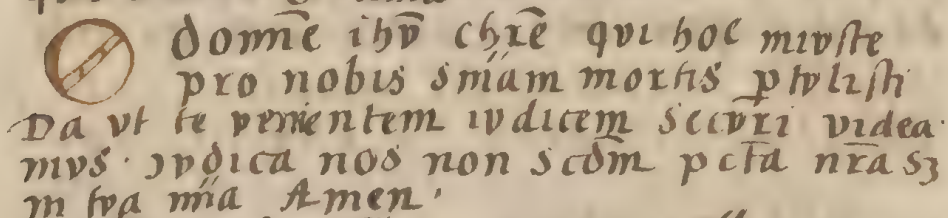 O domīe ihū chrē qui hoc iniuste
pro nobis sn̄iam mortis ꝑtulisti
Da ut te venientem iudicem securi videa
mus. iudica nos non scd̄m pctā nr̄a sꝫ
in tua mīa Amen.